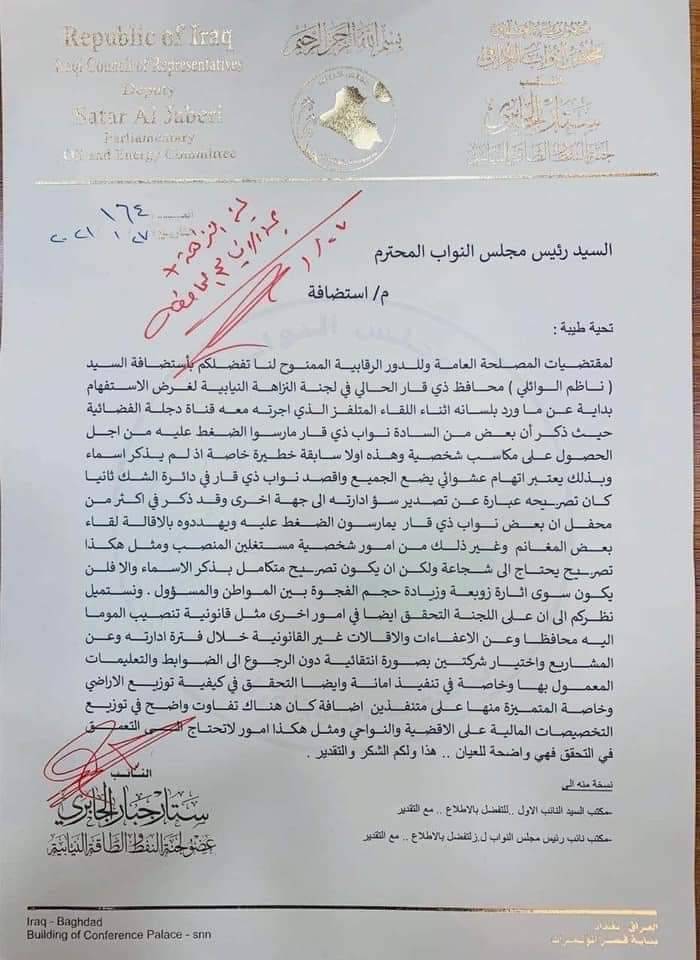 Republic of Iraq
Iraqi Council of Representatives
Deputy
Satar Al Jaberi
Parliamentary
Oil and Energy Committee
بسم الله الرحمن الرحيم
جمهورية العراق
مجلس النواب العراقي
النائب
ستار الجابري
لجنة النفط والطاقة النيابية
العدد ١٦٤
التاريخ ٢٠٢١/١/٢٧
لجنة النزاهة
السيد رئيس مجلس النواب المحترم
م/ استضافة
تحية طيبة :
لمقتضيات المصلحة العامة وللدور الرقابية الممنوح لنا تفضلكم بأستضافة السيد
( ناظم الوائلي ) محافظ ذي قار الحالي في لجنة النزاهة النيابية لغرض الاستفهام
بداية عن ما ورد بلسانه اثناء اللقاء المتلفز الذي اجرته معه قناة دجلة الفضائية
حيث ذكر أن بعض من السادة نواب ذي قار مارسوا الضغط عليه من اجل
الحصول على مكاسب شخصية وهذه اولا سابقة خطيرة خاصة اذ لم يذكر اسماء
وبذلك يعتبر اتهام عشوائي يضع الجميع واقصد نواب ذي قار في دائرة الشك ثانيا
كان تصريحه عبارة عن تصدير سؤ ادارته الى جهة اخرى وقد ذكر في اكثر من
محفل ان بعض نواب ذي قار يمارسون الضغط عليه ويهددوه بالاقالة لقاء
بعض المغانم وغير ذلك من امور شخصية مستغلين المنصب ومثل هكذا
تصريح يحتاج الى شجاعة ولكن ان يكون تصريح متكامل بذكر الاسماء والا فلن
يكون سوى اثارة زوبعة وزيادة حجم الفجوة بين المواطن والمسؤول . ونستميل
نظركم الى ان على اللجنة التحقق ايضا في امور اخرى مثل قانونية تنصيب الموما
اليه محافظا وعن الاعفاءات والاقالات غير القانونية خلال فترة ادارته وعن
المشاريع واختيار شركتين بصورة انتقائية دون الرجوع الى الضوابط والتعليمات
المعمول بها وخاصة في تنفيذ امانة وايضا التحقق في كيفية توزيع الاراضي
وخاصة المتميزة منها على متنفذين اضافة كان هناك تفاوت واضح في توزيع
التخصيصات المالية على الاقضية والنواحي ومثل هكذا امور لاتحتاج الى التعمق
في التحقق فهي واضحة للعيان .. هذا ولكم الشكر والتقدير .
النائب
ستار جبار الجابري
عضو لجنة النفط والطاقة النيابية
نسخة منه الى
-مكتب السيد النائب الاول ..للتفضل بالاطلاع .. مع التقدير
-مكتب نائب رئيس مجلس النواب ل.زلتفضل بالاطلاع .. مع التقدير
Iraq - Baghdad
Building of Conference Palace - snn
العراق - بغداد
بناية قصر المؤتمرات